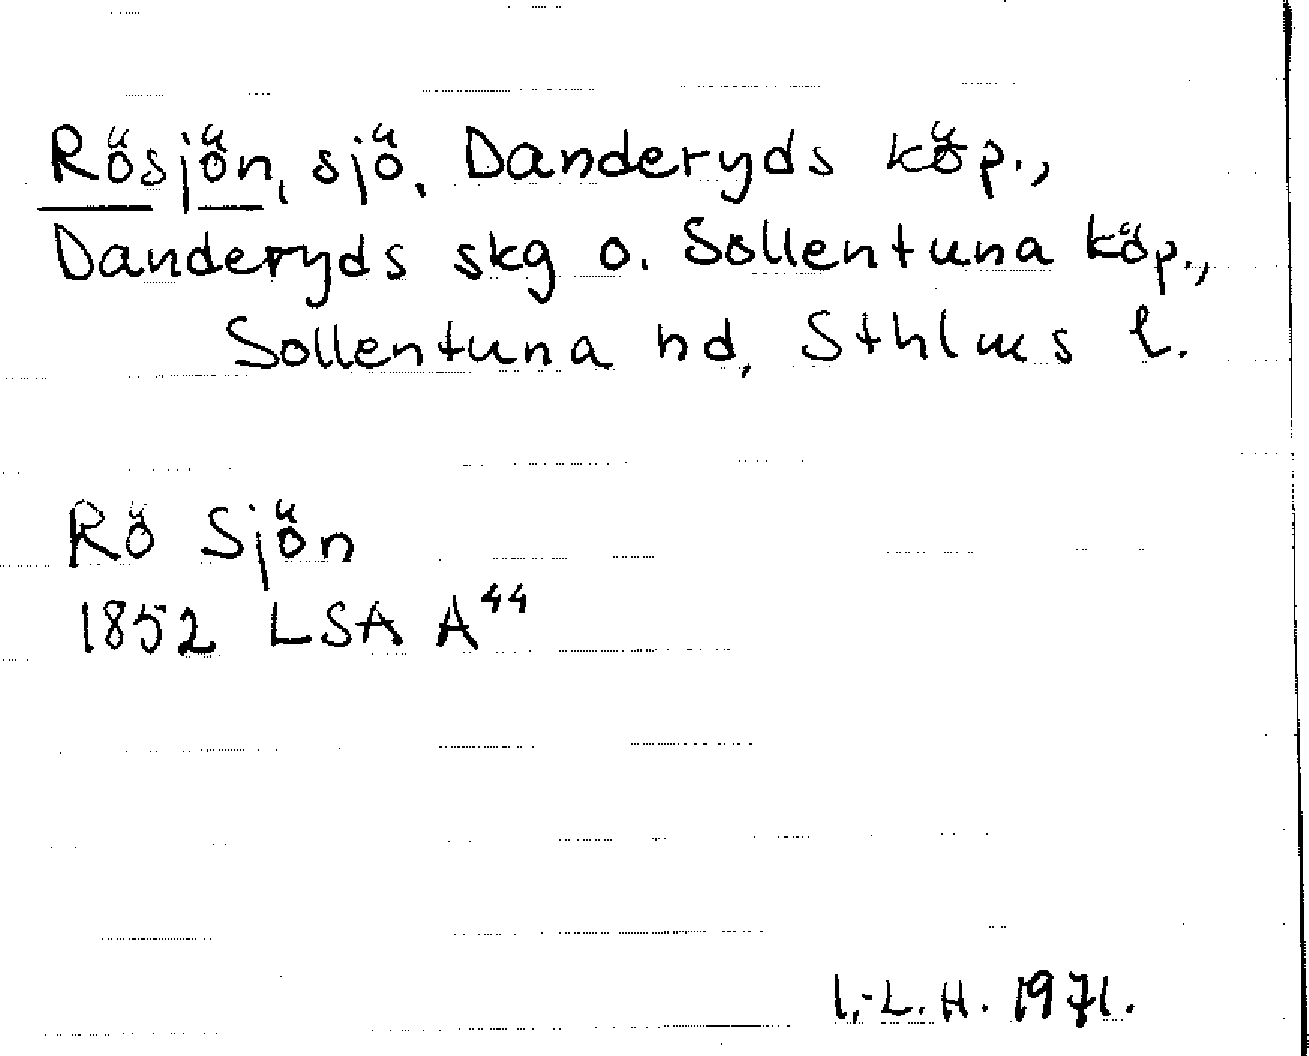 Rösjön, sjö, Danderyds köp.,
Danderyds skg o. Sollentuna köp.,
Sollentuna hd, Sthlms l.
Rö Sjön
1852 LSA A44
I.-L.H. 1971.